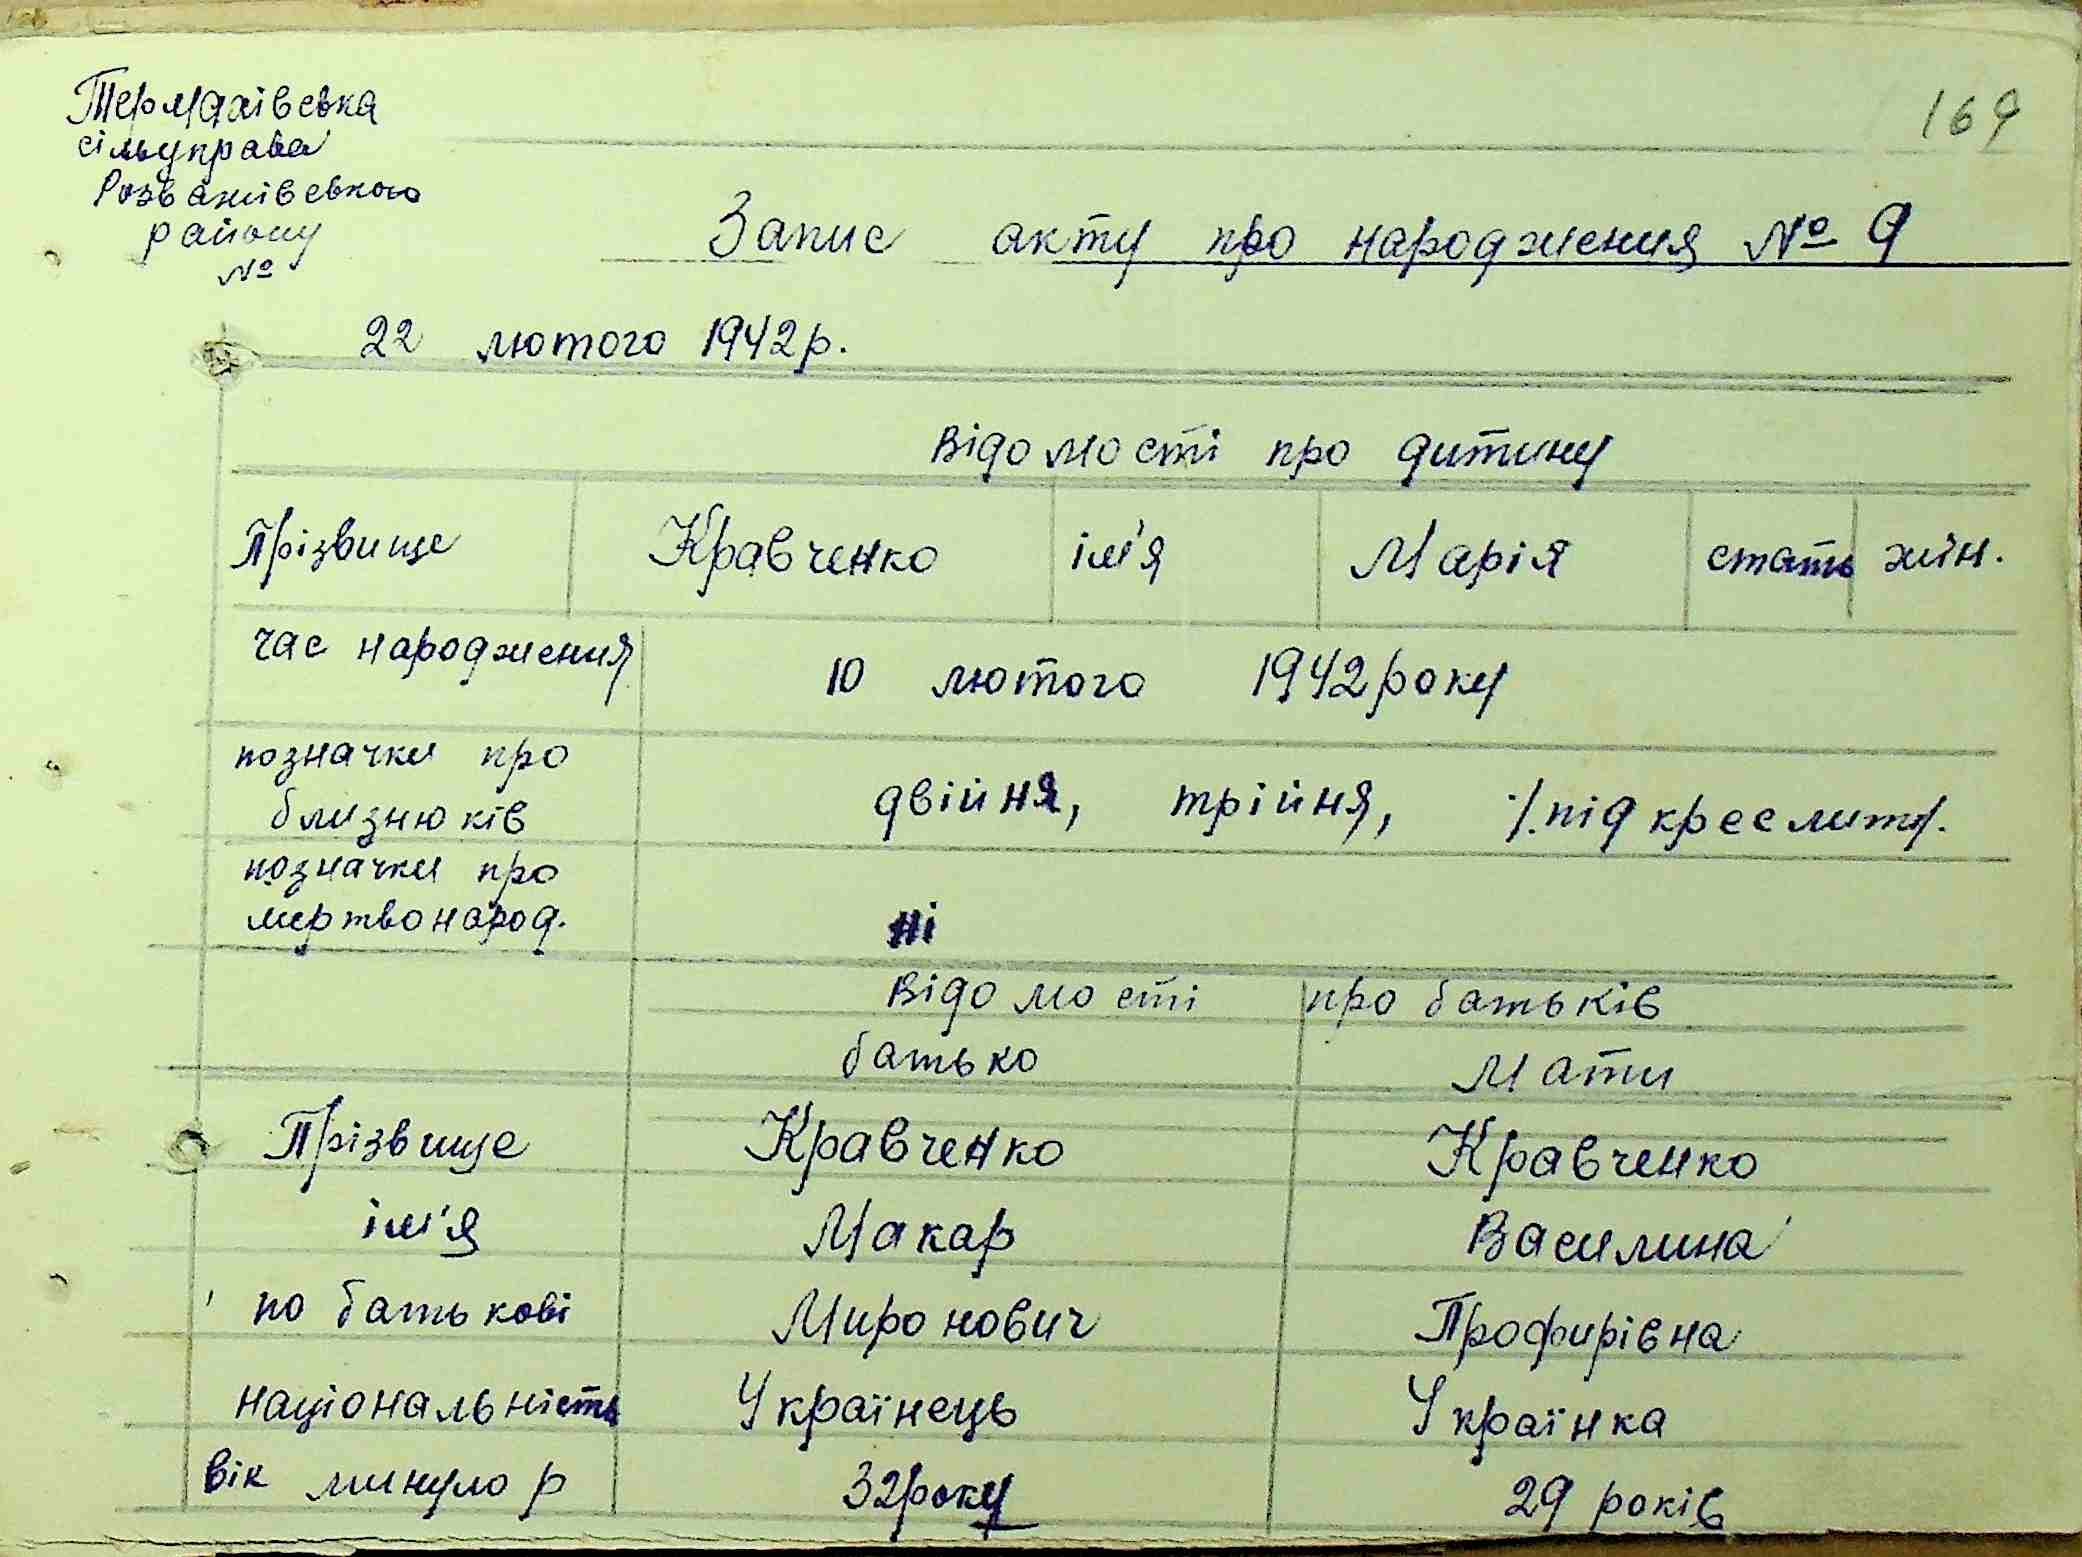 Термахівська
сільуправа
Розважівського
району
№
169
Запис акту про народження № 9
22 лютого 1942р.
Відомості про дитину
Прізвище Кравченко ім'я Марія стать жін.
час народження 10 лютого 1942року
позначки про
близнюків
двійня, трійня, ·/.підкреслити/.
позначки про
мертвонарод.
ні
Відомості про батьків
батько Мати
Прізвище Кравченко Кравченко
ім'я Макар Василина
по батькові Миронович Профирівна
національність Українець Українка
вік минуло р 32року 29 років